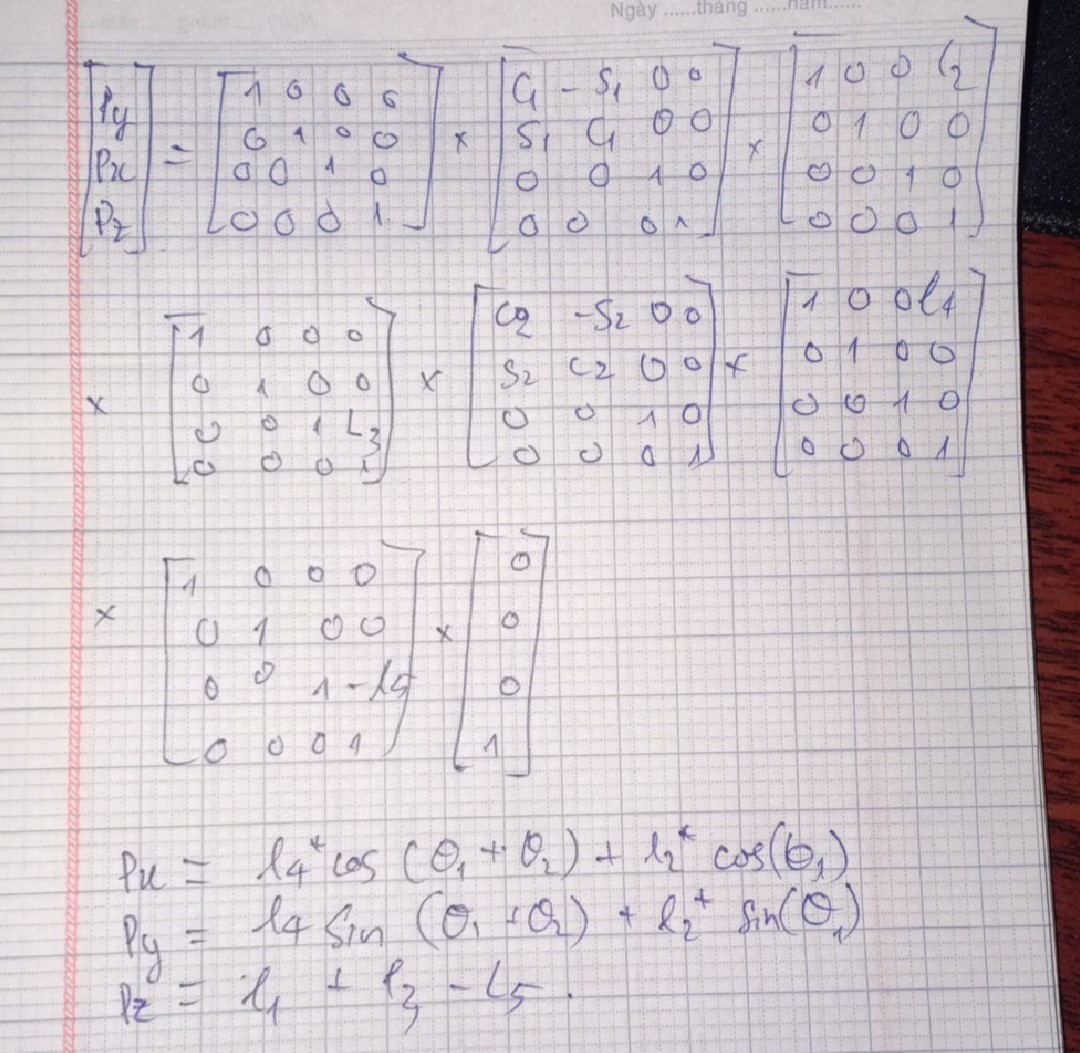 Ngày ......tháng ......năm......
[Py Px Pz] = [1 0 0 0; 0 1 0 0; 0 0 1 0; 0 0 0 1] × [C1 -S1 0 0; S1 C1 0 0; 0 0 1 0; 0 0 0 1] × [1 0 0 l2; 0 1 0 0; 0 0 1 0; 0 0 0 1]
× [1 0 0 0; 0 1 0 0; 0 0 1 L3; 0 0 0 1] × [C2 -S2 0 0; S2 C2 0 0; 0 0 1 0; 0 0 0 1] × [1 0 0 l4; 0 1 0 0; 0 0 1 0; 0 0 0 1]
× [1 0 0 0; 0 1 0 0; 0 0 1 -l5; 0 0 0 1] × [0; 0; 0; 1]
Px = l4*cos(θ1 + θ2) + l2* cos(θ1)
Py = l4 sin(θ1 + θ2) + l2* sin(θ1)
Pz = l1 + l3 - L5.